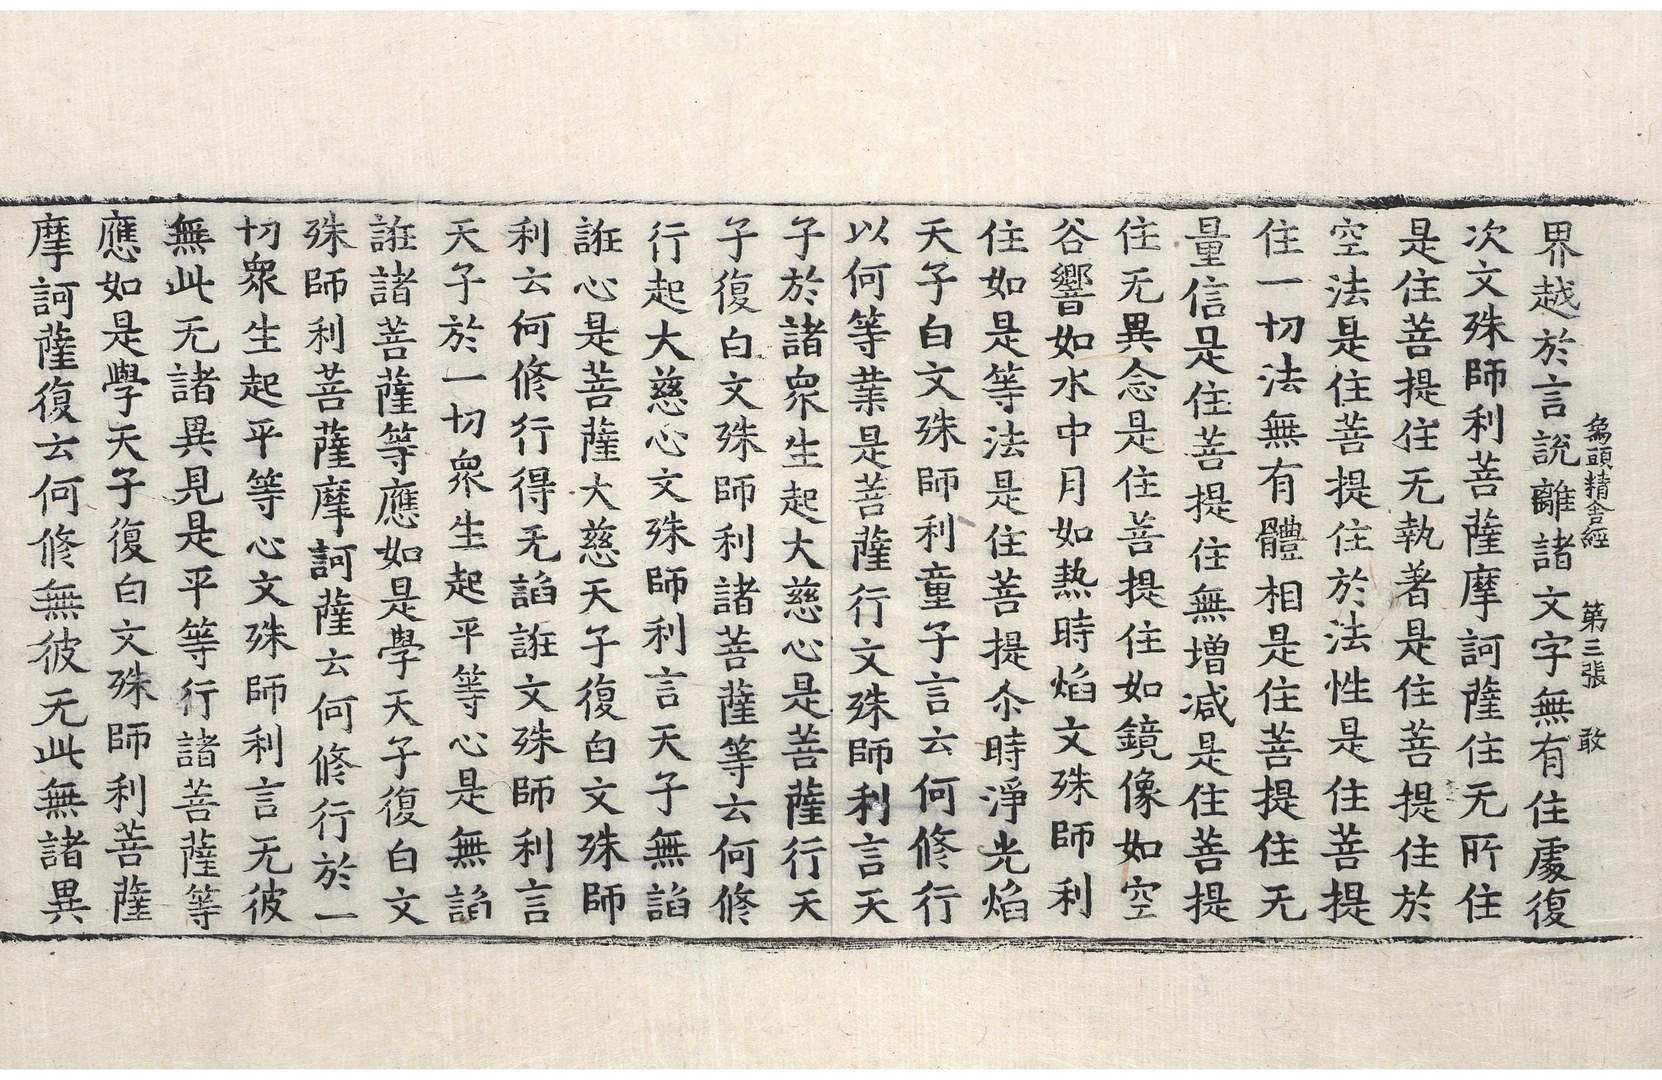 象頭精舍經 第三張 敢
界越於言說離諸文字無有住處復
次文殊師利菩薩摩訶薩住无所住
是住菩提住无執著是住菩提住於
空法是住菩提住於法性是住菩提
住一切法無有體相是住菩提住无
量信是住菩提住無增減是住菩提
住无異念是住菩提住如鏡像如空
谷響如水中月如熱時焰文殊師利
住如是等法是住菩提尒時淨光焰
天子白文殊師利童子言云何修行
以何等業是菩薩行文殊師利言天
子於諸眾生起大慈心是菩薩行天
子復白文殊師利諸菩薩等云何修
行起大慈心文殊師利言天子無諂
誑心是菩薩大慈天子復白文殊師
利云何修行得无諂誑文殊師利言
天子於一切眾生起平等心是無諂
誑諸菩薩等應如是學天子復白文
殊師利菩薩摩訶薩云何修行於一
切眾生起平等心文殊師利言无彼
無此无諸異見是平等行諸菩薩等
應如是學天子復白文殊師利菩薩
摩訶薩復云何修無彼无此無諸異